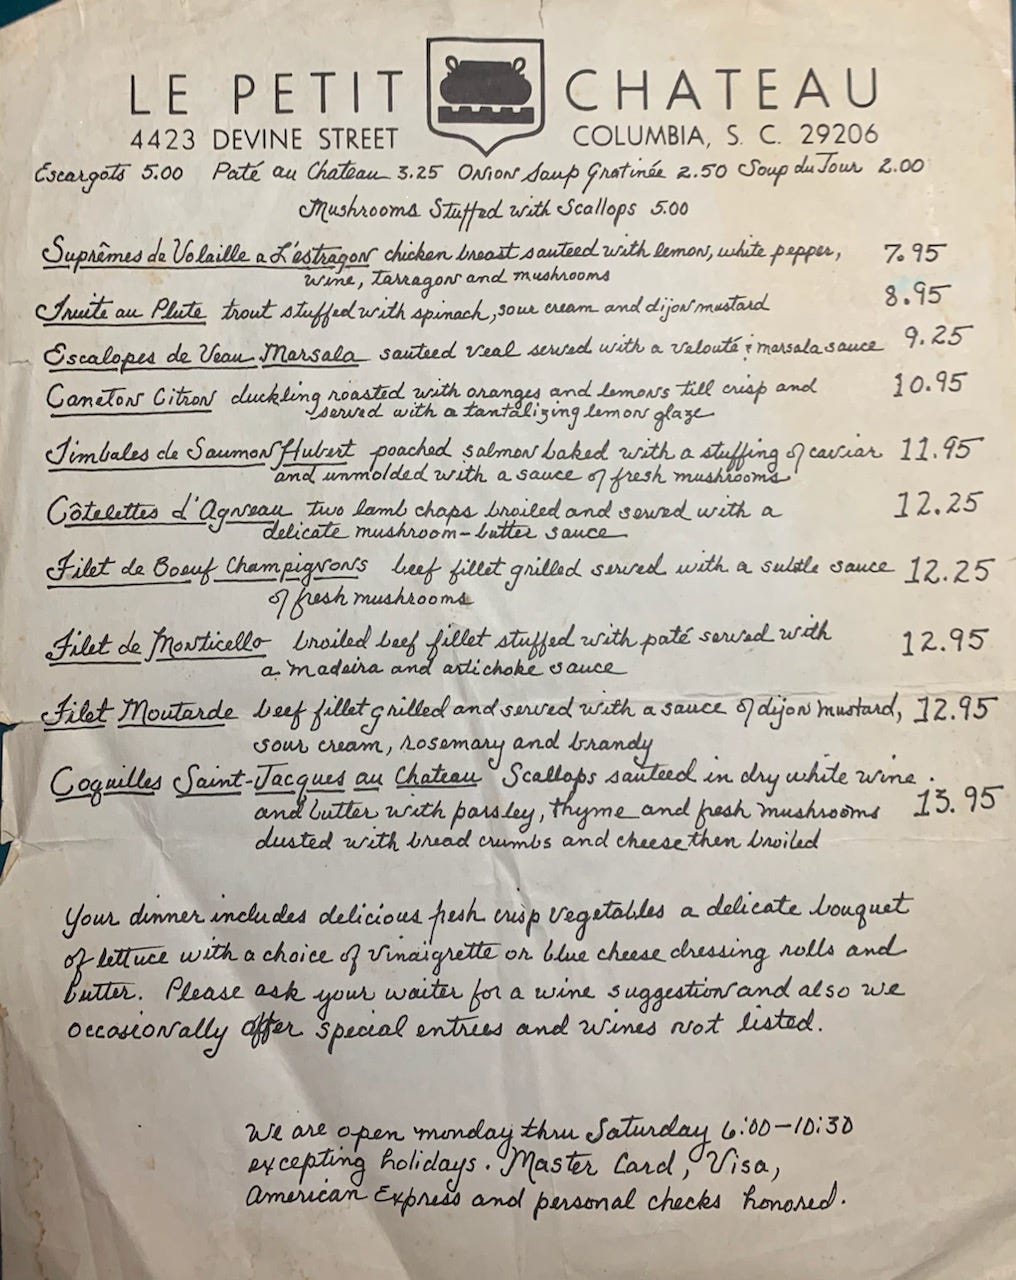 LE PETIT CHATEAU
4423 DEVINE STREET COLUMBIA, S. C. 29206
Escargots 5.00 Paté au Chateau 3.25 Onion Soup Gratinée 2.50 Soup du Jour 2.00
Mushrooms Stuffed with Scallops 5.00
Suprêmes de Volaille a L'estragon chicken breast sauteed with lemon, white pepper, 7.95
wine, tarragon and mushrooms
Truite au Plute trout stuffed with spinach, sour cream and dijon mustard 8.95
Escalopes de Veau Marsala sauteed veal served with a velouté & marsala sauce 9.25
Caneton Citron duckling roasted with oranges and lemons till crisp and 10.95
served with a tantalizing lemon glaze
Timbales de Saumon Hubert poached salmon baked with a stuffing of caviar 11.95
and unmolded with a sauce of fresh mushrooms
Côtelettes d'Agneau two lamb chops broiled and served with a 12.25
delicate mushroom-butter sauce
Filet de Boeuf Champignons beef fillet grilled served with a subtle sauce 12.25
of fresh mushrooms
Filet de Monticello broiled beef fillet stuffed with paté served with 12.95
a madeira and artichoke sauce
Filet Moutarde beef fillet grilled and served with a sauce of dijon mustard, 12.95
sour cream, rosemary and brandy
Coquilles Saint-Jacques au Chateau Scallops sauteed in dry white wine
and butter with parsley, thyme and fresh mushrooms 13.95
dusted with bread crumbs and cheese then broiled
Your dinner includes delicious fresh crisp vegetables a delicate bouquet
of lettuce with a choice of vinaigrette or blue cheese dressing rolls and
butter. Please ask your waiter for a wine suggestion and also we
occasionally offer special entrees and wines not listed.
We are open monday thru Saturday 6:00-10:30
excepting holidays. Master Card, Visa,
American Express and personal checks honored.